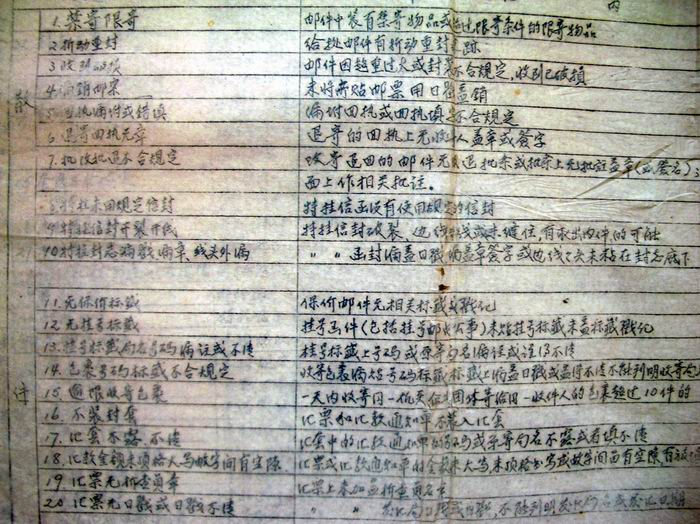 内
1. 禁寄限寄 邮件中装有禁寄物品或超过限寄条件的限寄物品
2 拆动重封 给据邮件有拆动重封 迹
3 收到破损 邮件因超重过大或封装不合规定,收到已破损
散 4 漏销邮票 未将所贴邮票用日戳盖销
5 回执漏附或错填 漏附回执或回执填写不合规定
6 退寄回执无章 退寄的回执上无收件人盖章或签字
7. 批改批退不合规定 改寄退回的邮件无 退批条或批条上无批注盖章(或签名)
面上作相关批注。
8 特挂未用规定信封 特挂信函没有使用规定信封
9 特挂信封开裂开线 特挂信封破裂 边线 线或未缝住,有取出内件的可能
10 特挂封志漏戳漏章、线头外漏 〃 〃 函封漏盖日戳漏盖章签字或边线 头未粘在封志底下
11. 无保价标签 保价邮件无相关标签或戳记
12. 无挂号标签 挂号函件(包括挂号邮政公事)未贴挂号标签未盖标签戳记
13. 挂号标签局名号码漏注或不清 挂号标签上号码或原寄局名漏注或注得不清
14. 包裹号码标签不合规定 收寄包裹漏贴号码标签标签上漏盖日戳或盖得不清不能判明收寄局
件 15. 逾限收寄包裹 一天内收寄同一机关 团体寄给同一收件人的包裹超过10件的
16. 不装封套 汇票和汇款通知单不装入汇套
17. 汇套不露、不清 汇套中的汇款通知单的号码或原寄局名不露或者填不清
18. 汇款金额未顶格大写数字间有空隙 汇票或汇款通知单的金额未大写未顶格书写或数字间留有空隙,
19 汇票无检查员章 汇票上未加盖检查员名章
20 汇票无日戳或日戳不清 〃 〃 局日戳或日戳 不清,不能判明发汇局名或发汇日期